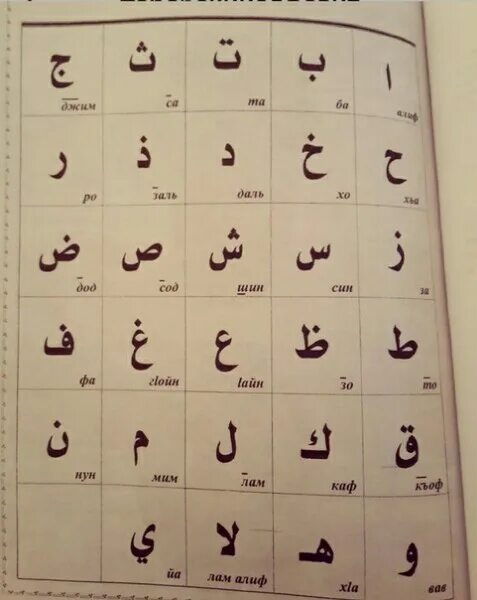 ا ب ت ث ج
алиф ба та са джим
ح خ د ذ ر
хьа хо даль заль ро
ز س ش ص ض
за син шин сод дод
ط ظ ع غ ف
то зо Iайн гIойн фа
ق ك ل م ن
къоф каф лам мим нун
و هـ لا ي
вав хIа лам алиф йа